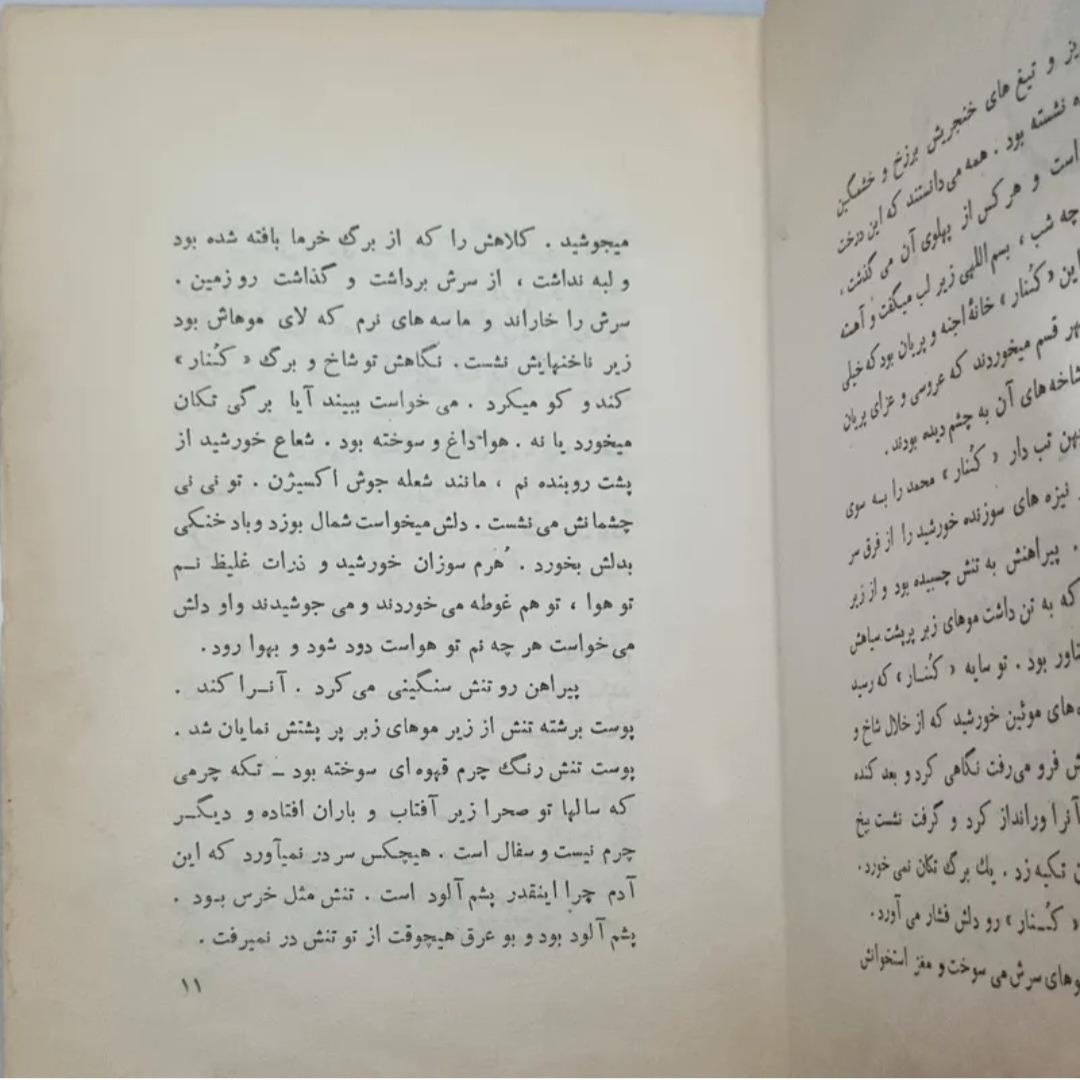 و تیغ های خنجریش برزخ و خشمگین
نشسته بود . همه می‌دانستند که این درخت
است و هر کس از پهلوی آن می گذشت ،
چه شب ، بسم اللهی زیر لب میگفت و آهسته
این « کُنار » خانهٔ اجنه و پریان بود که خیلی
قسم میخوردند که عروسی و عزای پریان
شاخه های آن به چشم دیده بودند .
تب دار « کُنار » محمد را به سوی
نیزه های سوزنده خورشید را از فرق سر
. پیراهنش به تنش چسبیده بود و از زیر
که به تن داشت موهای زبر پرپشت سیاهش
بود . تو سایه « کُنـار » که رسید
های موئین خورشید که از خلال شاخ و
فرو می‌رفت نگاهی کرد و بعد کنده
آنرا ورانداز کرد و گرفت نشست بیخ
تکیه زد . یك برگ تکان نمی خورد .
« کُـنار » رو دلش فشار می آورد .
سرش می سوخت و مغز استخوانش
میجوشید . کلاهش را که از برگ خرما بافته شده بود
و لبه نداشت ، از سرش برداشت و گذاشت رو زمین .
سرش را خاراند و ماسه های نرم که لای موهاش بود
زیر ناخنهایش نشست . نگاهش تو شاخ و برگ « کُنار »
کند و کو میکرد . می خواست ببیند آیا برگی تکان
میخورد یا نه . هوا داغ و سوخته بود . شعاع خورشید از
پشت روبنده نم ، مانند شعله جوش اکسیژن . تو نی نی
چشمانش می نشست . دلش میخواست شمال بوزد و باد خنکی
بدلش بخورد . هُرم سوزان خورشید و ذرات غلیظ نـم
تو هوا ، تو هم غوطه می خوردند و می جوشیدند و او دلش
می خواست هر چه نم تو هواست دود شود و بهوا رود .
پیراهن رو تنش سنگینی می کرد . آنـرا کند .
پوست برشته تنش از زیر موهای زبر پر پشتش نمایان شد .
پوست تنش رنگ چرم قهوه ای سوخته بود ـ تکه چرمی
که سالها تو صحرا زیر آفتاب و باران افتاده و دیگـر
چرم نیست و سفال است . هیچکس سر در نمیآورد که این
آدم چرا اینقدر پشم آلود است . تنش مثل خرس بـود .
پشم آلود بود و بو عرق هیچوقت از تو تنش در نمیرفت .
۱۱